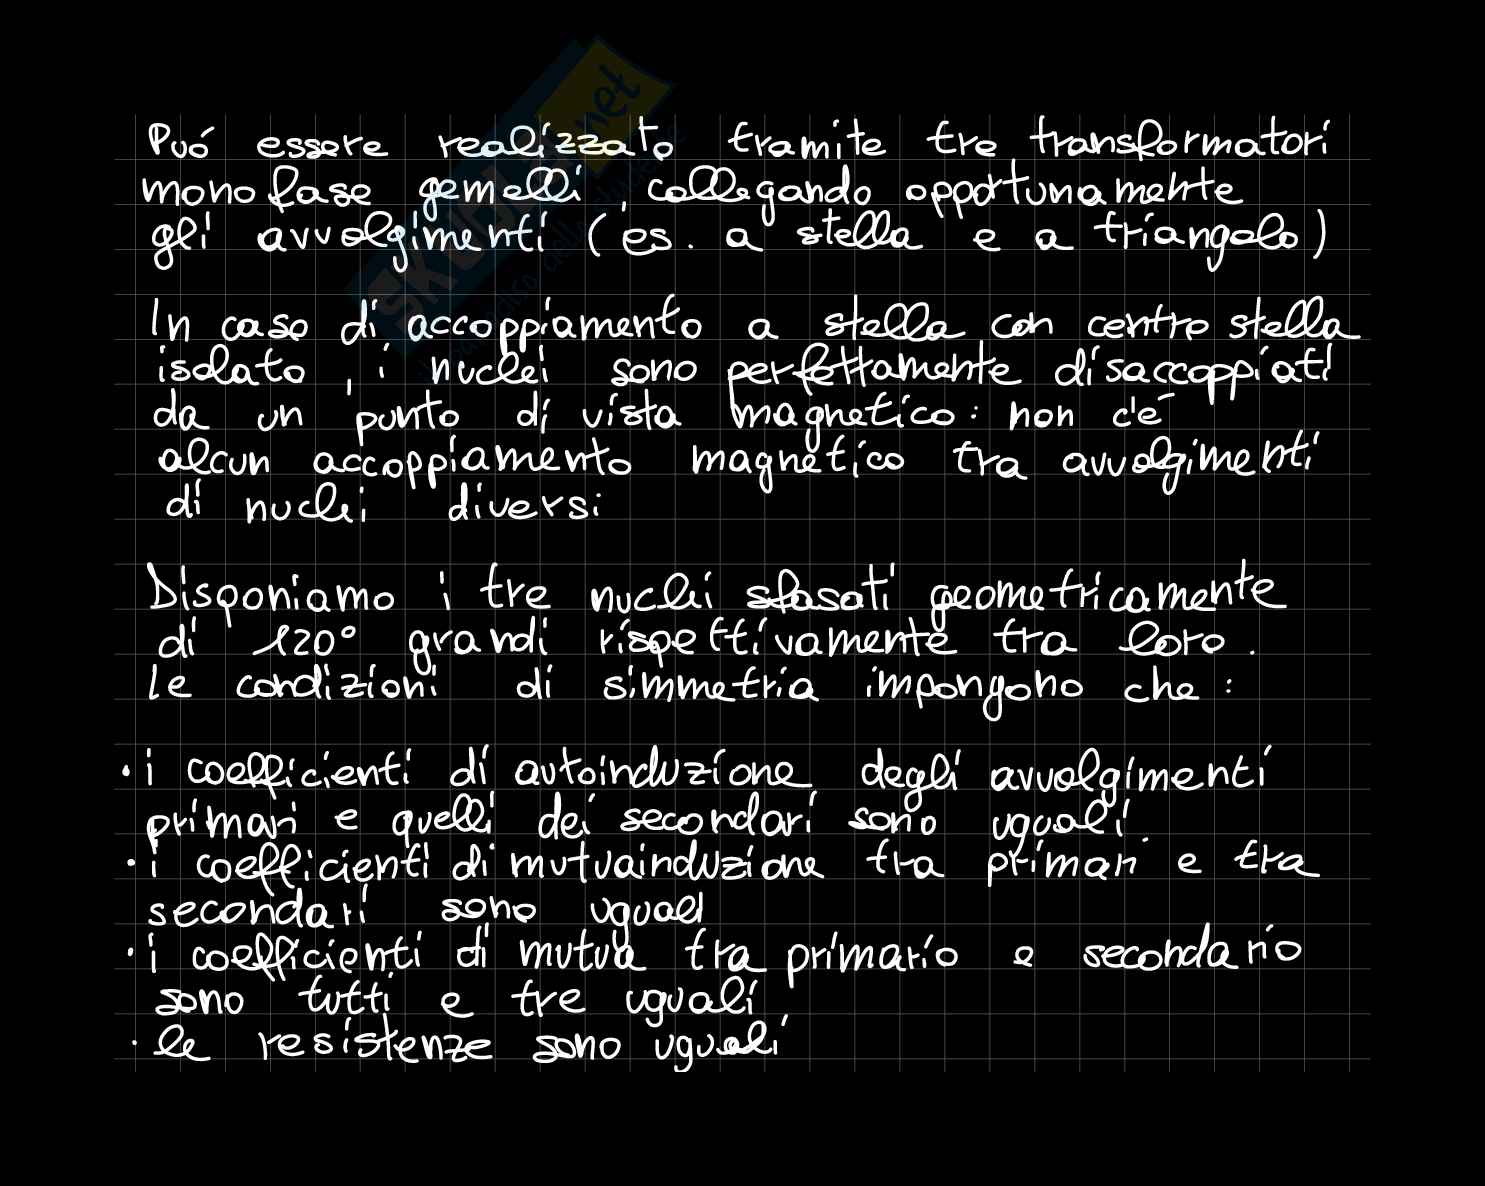 Può essere realizzato tramite tre transformatori
monofase gemelli, collegando opportunamente
gli avvolgimenti (es. a stella e a triangolo)
In caso di accoppiamento a stella con centro stella
isolato, i nuclei sono perfettamente disaccoppiati
da un punto di vista magnetico: non c'è
alcun accoppiamento magnetico tra avvolgimenti
di nuclei diversi
Disponiamo i tre nuclei sfasati geometricamente
di 120° grandi rispettivamente tra loro.
le condizioni di simmetria impongono che:
· i coefficienti di autoinduzione degli avvolgimenti
primari e quelli dei secondari sono uguali.
· i coefficienti di mutuainduzione tra primari e tra
secondari sono uguali
· i coefficienti di mutua tra primario e secondario
sono tutti e tre uguali
· le resistenze sono uguali